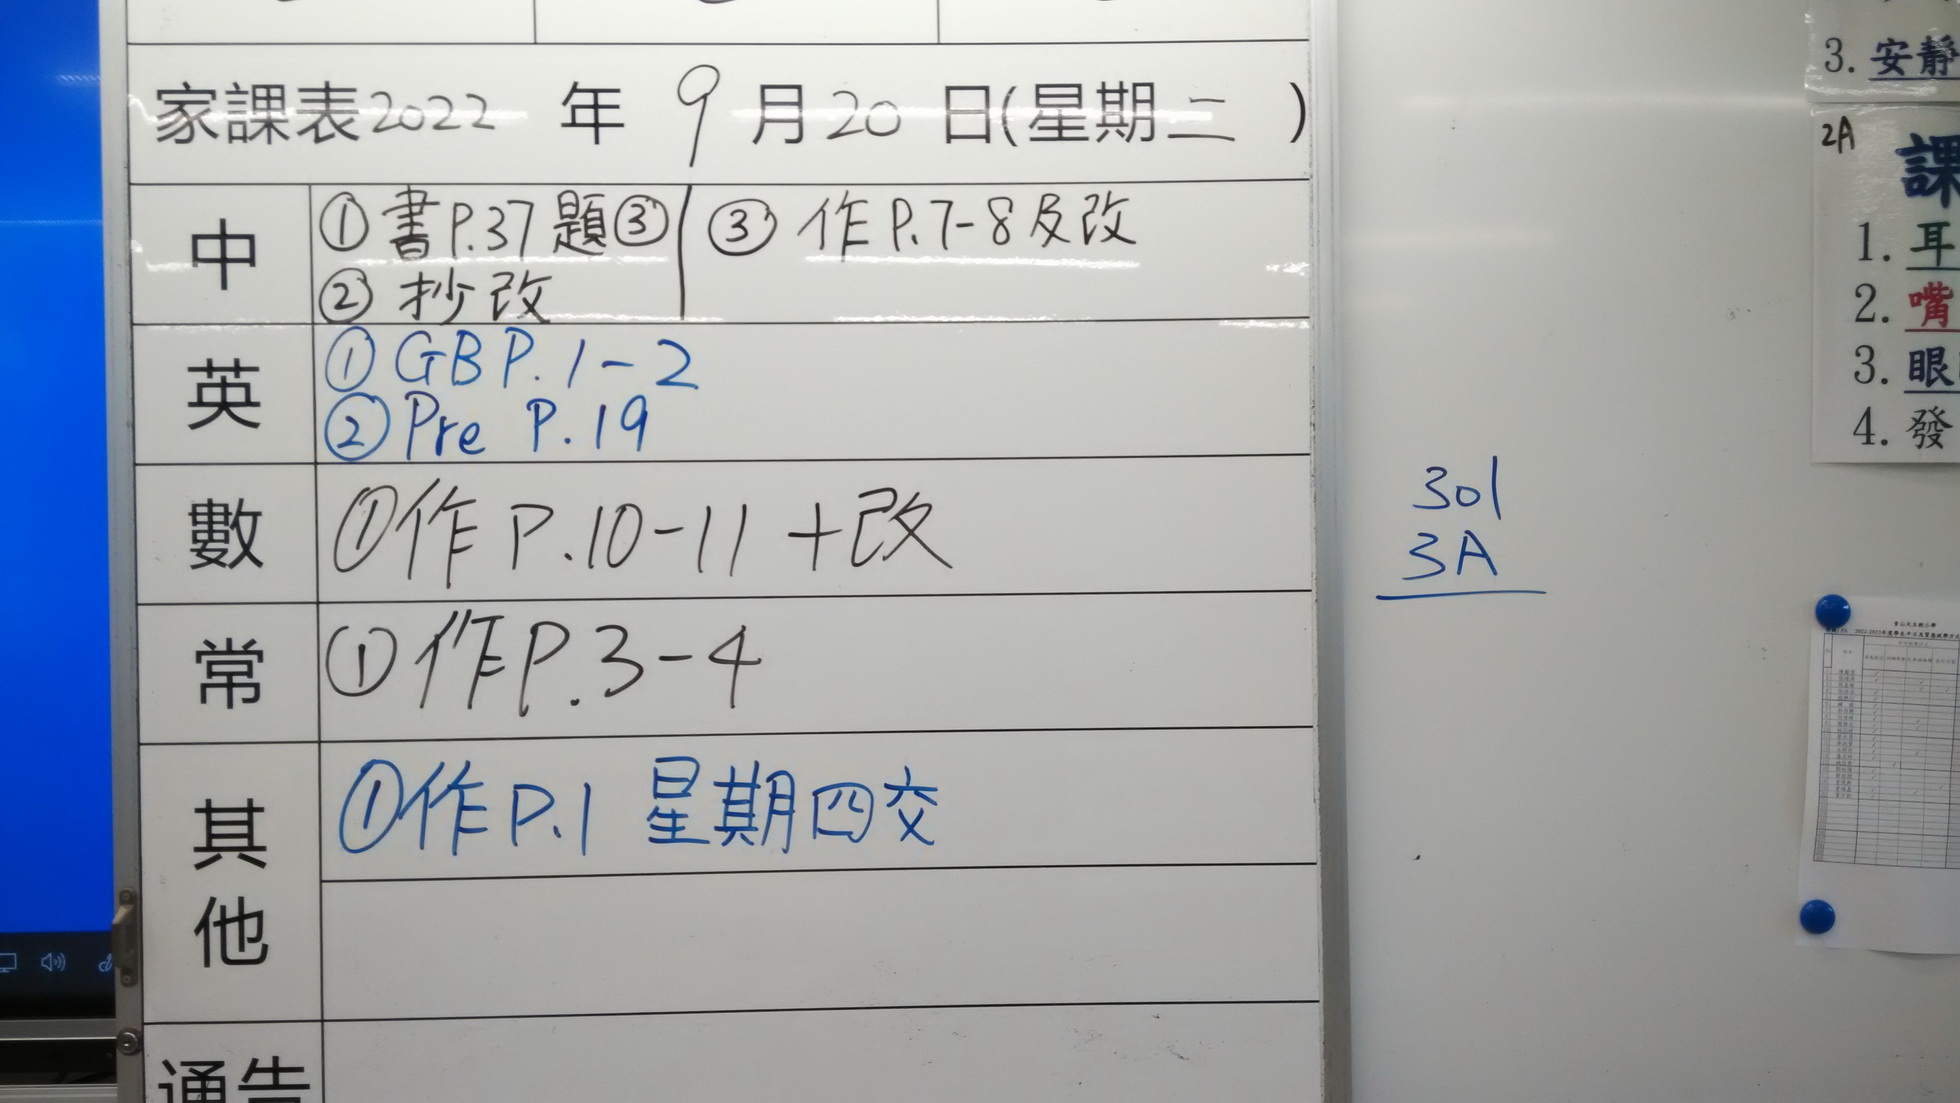 家課表2022 年 9 月 20 日(星期二 )
中
① 書P.37 題③
② 抄改
③ 作P.7-8及改
英
① GB P.1-2
② Pre P.19
數
①作P.10-11 +改
常
①作P.3-4
其他
①作P.1 星期四交
通告
301
3A
3. 安靜
2A
課
1. 耳
2. 嘴
3. 眼
4. 發